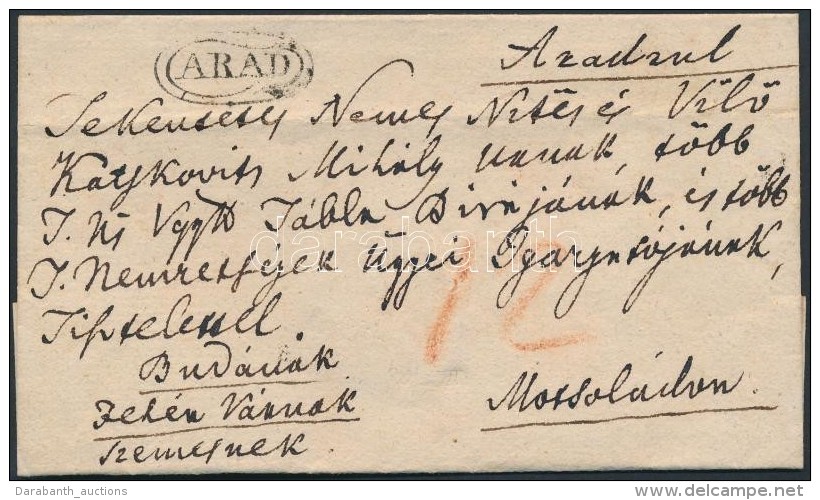 ARAD
Aradrul
Tekentetes Nemes Vitéz és Vitlö
Katskovits Mihály Urnak, több
T. Ns Vgyék Tábla Birájának, és több
T. Nemzetségek Ügyei Igazgatójának,
Tisztelettel.
Budának
Fehér Várnak
Szemesnek
Mocsoládon.
12
darabanth
Darabanth_auctions
www.delcampe.net